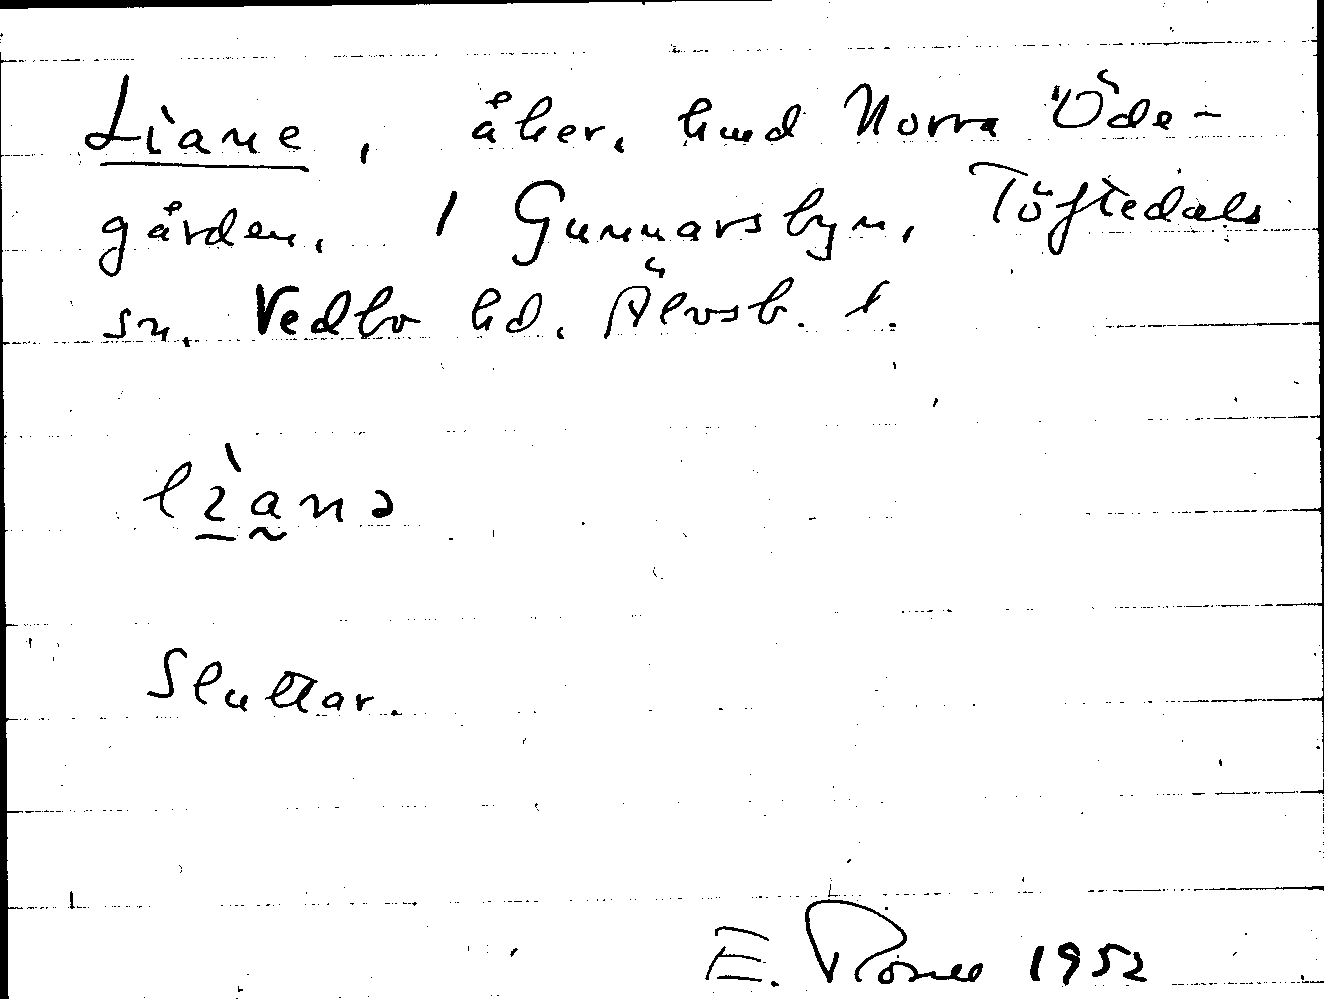 Lìane, åker, hmd Norra Öde-
gården, 1 Gunnarsbyn, Töftedals
sn. Vedbo hd. Älvsb. l.
lɩ̀anə
Sluttar.
E. Rosell 1952